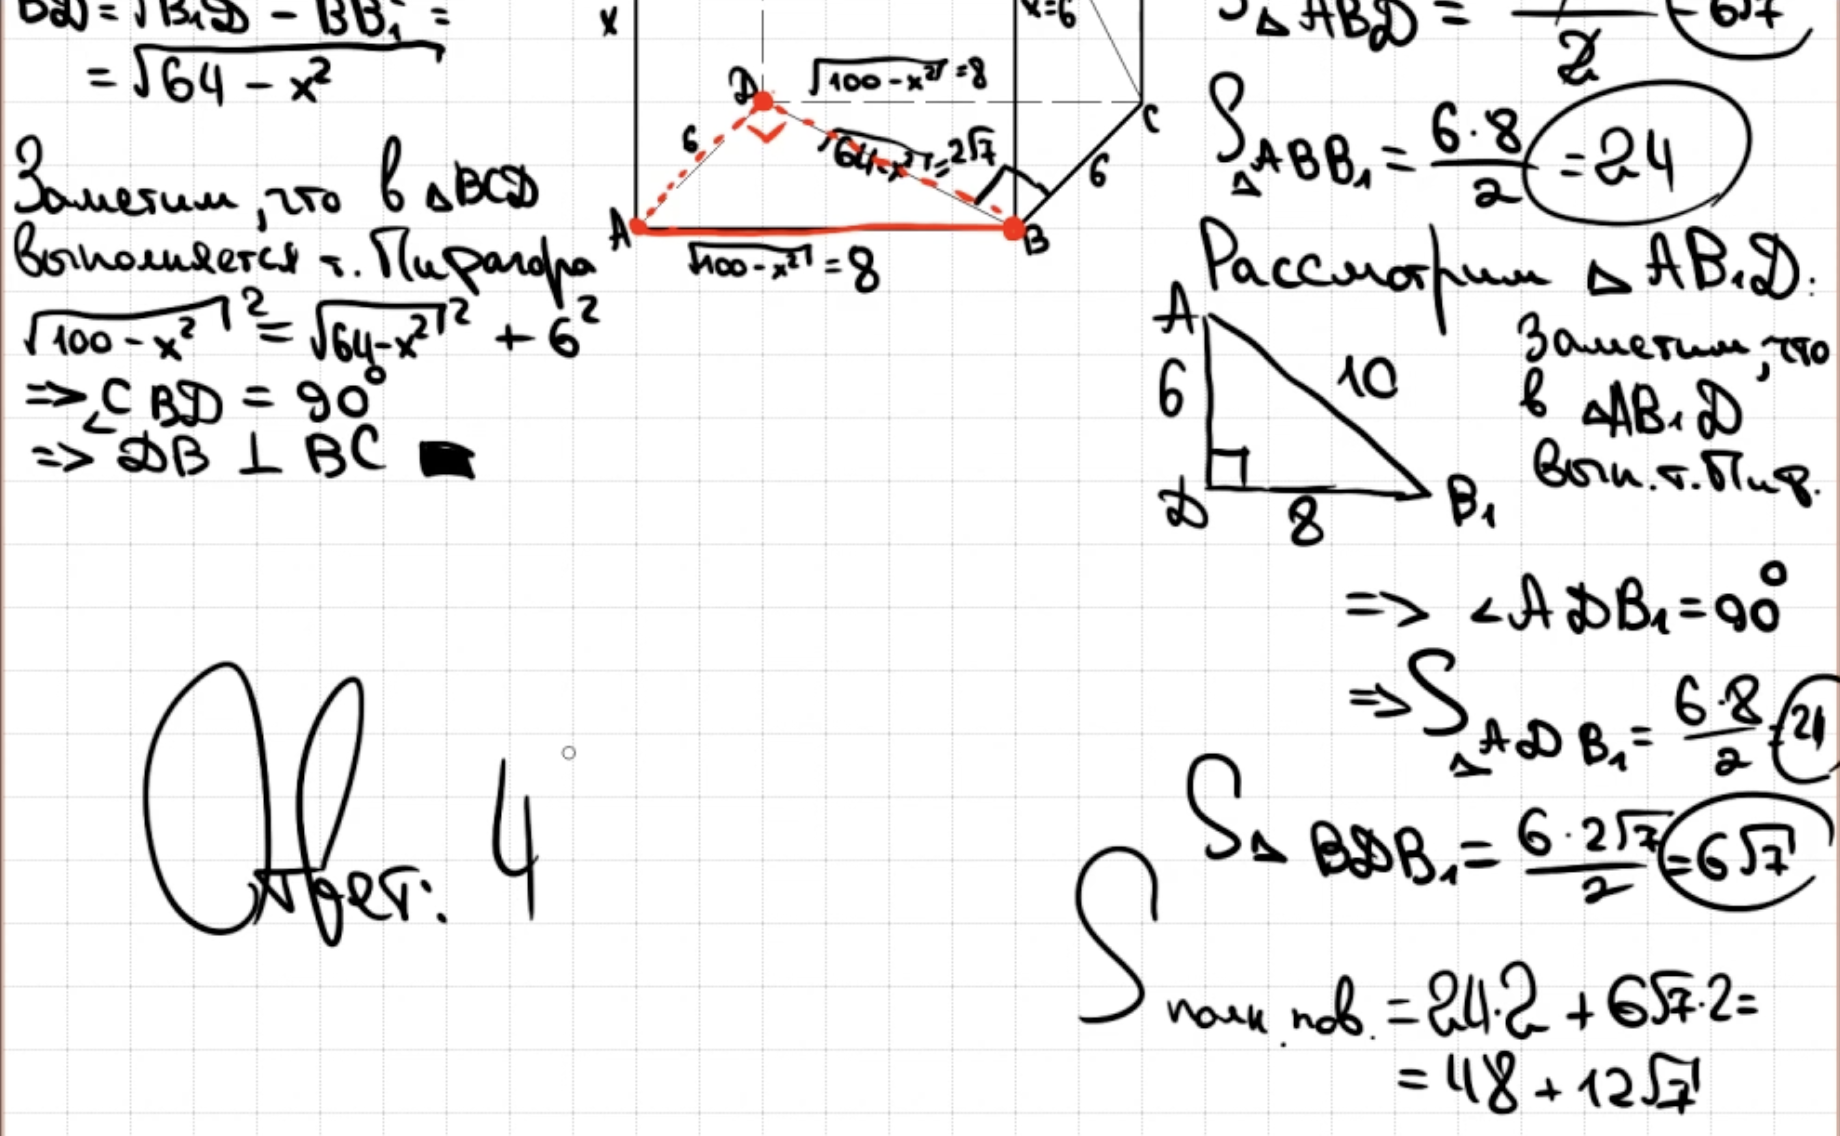 BD = √B₁D - BB₁ =
= √64 - x²
Заметим, что в △BCD
выполняется т. Пифагора
√100 - x²² = √64-x²² + 6²
=> ∠CBD = 90°
=> DB ⊥ BC ■
x
x=6
D
√100 - x² = 8
C
6
√64-x² = 2√7
6
A
B
√100 - x² = 8
S△ABD = — = 6√7
2
S△ABB₁ = 6·8/2 = 24
Рассмотрим △AB₁D:
A
6
10
D
8
B₁
Заметим, что
в △AB₁D
вып. т. Пиф.
=> ∠ADB₁ = 90°
=> S△ADB₁ = 6·8/2 = 24
S△BDB₁ = 6·2√7/2 = 6√7
S полн. пов. = 24·2 + 6√7·2 =
= 48 + 12√7
Ответ: 4